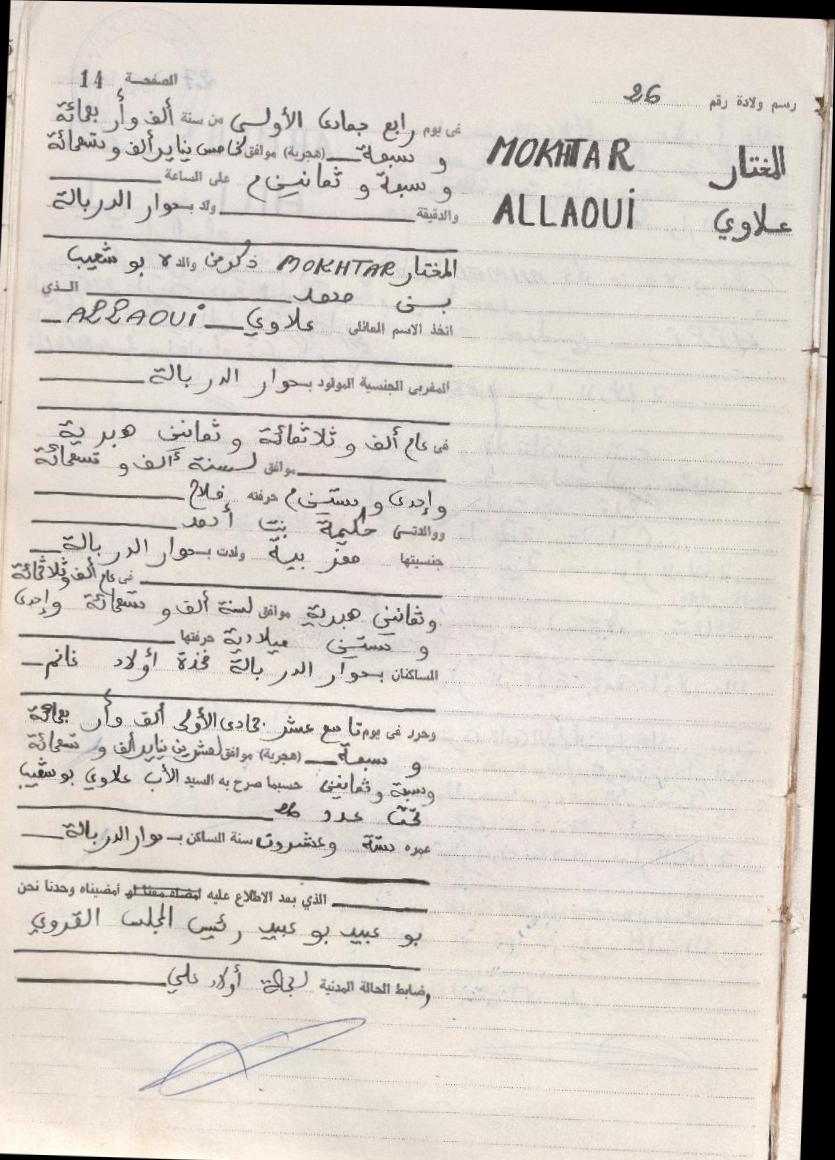 الصفحة 14
رسم ولادة رقم 26
المختار MOKHTAR
علاوي ALLAOUI
فى يوم رابع جمادى الأولى من سنة ألف وأربعمائة
و سبعة (هجرية) موافق لخامس يناير ألف وتسعمائة
و سبعة و ثمانين م على الساعة
والدقيقة ولد بـدوار الدربالة
المختار MOKHTAR ذكر من والده بوشعيب
بن محمد الذي
اتخذ الاسم العائلى علاوي ALLAOUI
المغربى الجنسية المولود بـدوار الدربالة
فى عام ألف و ثلاثمائة و ثمانين هجرية
موافق لسنة ألف و تسعمائة
وإحدى و ستين م حرفته فلاح
ووالدتـه حليمة بنت أحمد
جنسيتها مغربية ولدت بـدوار الدربالة
فى عام ألف وثلاثمائة
وثمانين هجرية موافق لسنة ألف و تسعمائة وإحدى
و ستين ميلادية حرفتها
الساكنان بـدوار الدربالة فخذة أولاد غانم
وحرر فى يوم تاسع عشر جمادى الأولى ألف وأربعمائة
و سبعة (هجرية) موافق لعشرين يناير ألف و تسعمائة
وسبعة وثمانين حسبما صرح به السيد الأب علاوي بوشعيب
تحت عدد 26
عمره ستة وعشرون سنة الساكن بـدوار الدربالة
الذي بعد الاطلاع عليه امضاه معنا او أمضيناه وحدنا نحن
بوعبيد بوعبيد رئيس المجلس القروي
وضابط الحالة المدنية لجماعة أولاد علي